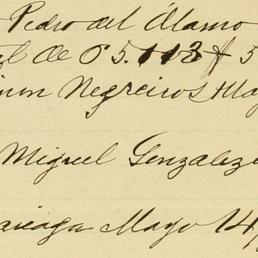 Pedro del Alamo
de $ 5.113 5
Negreiros Ma
Miguel Gonzalez
Mayo 14